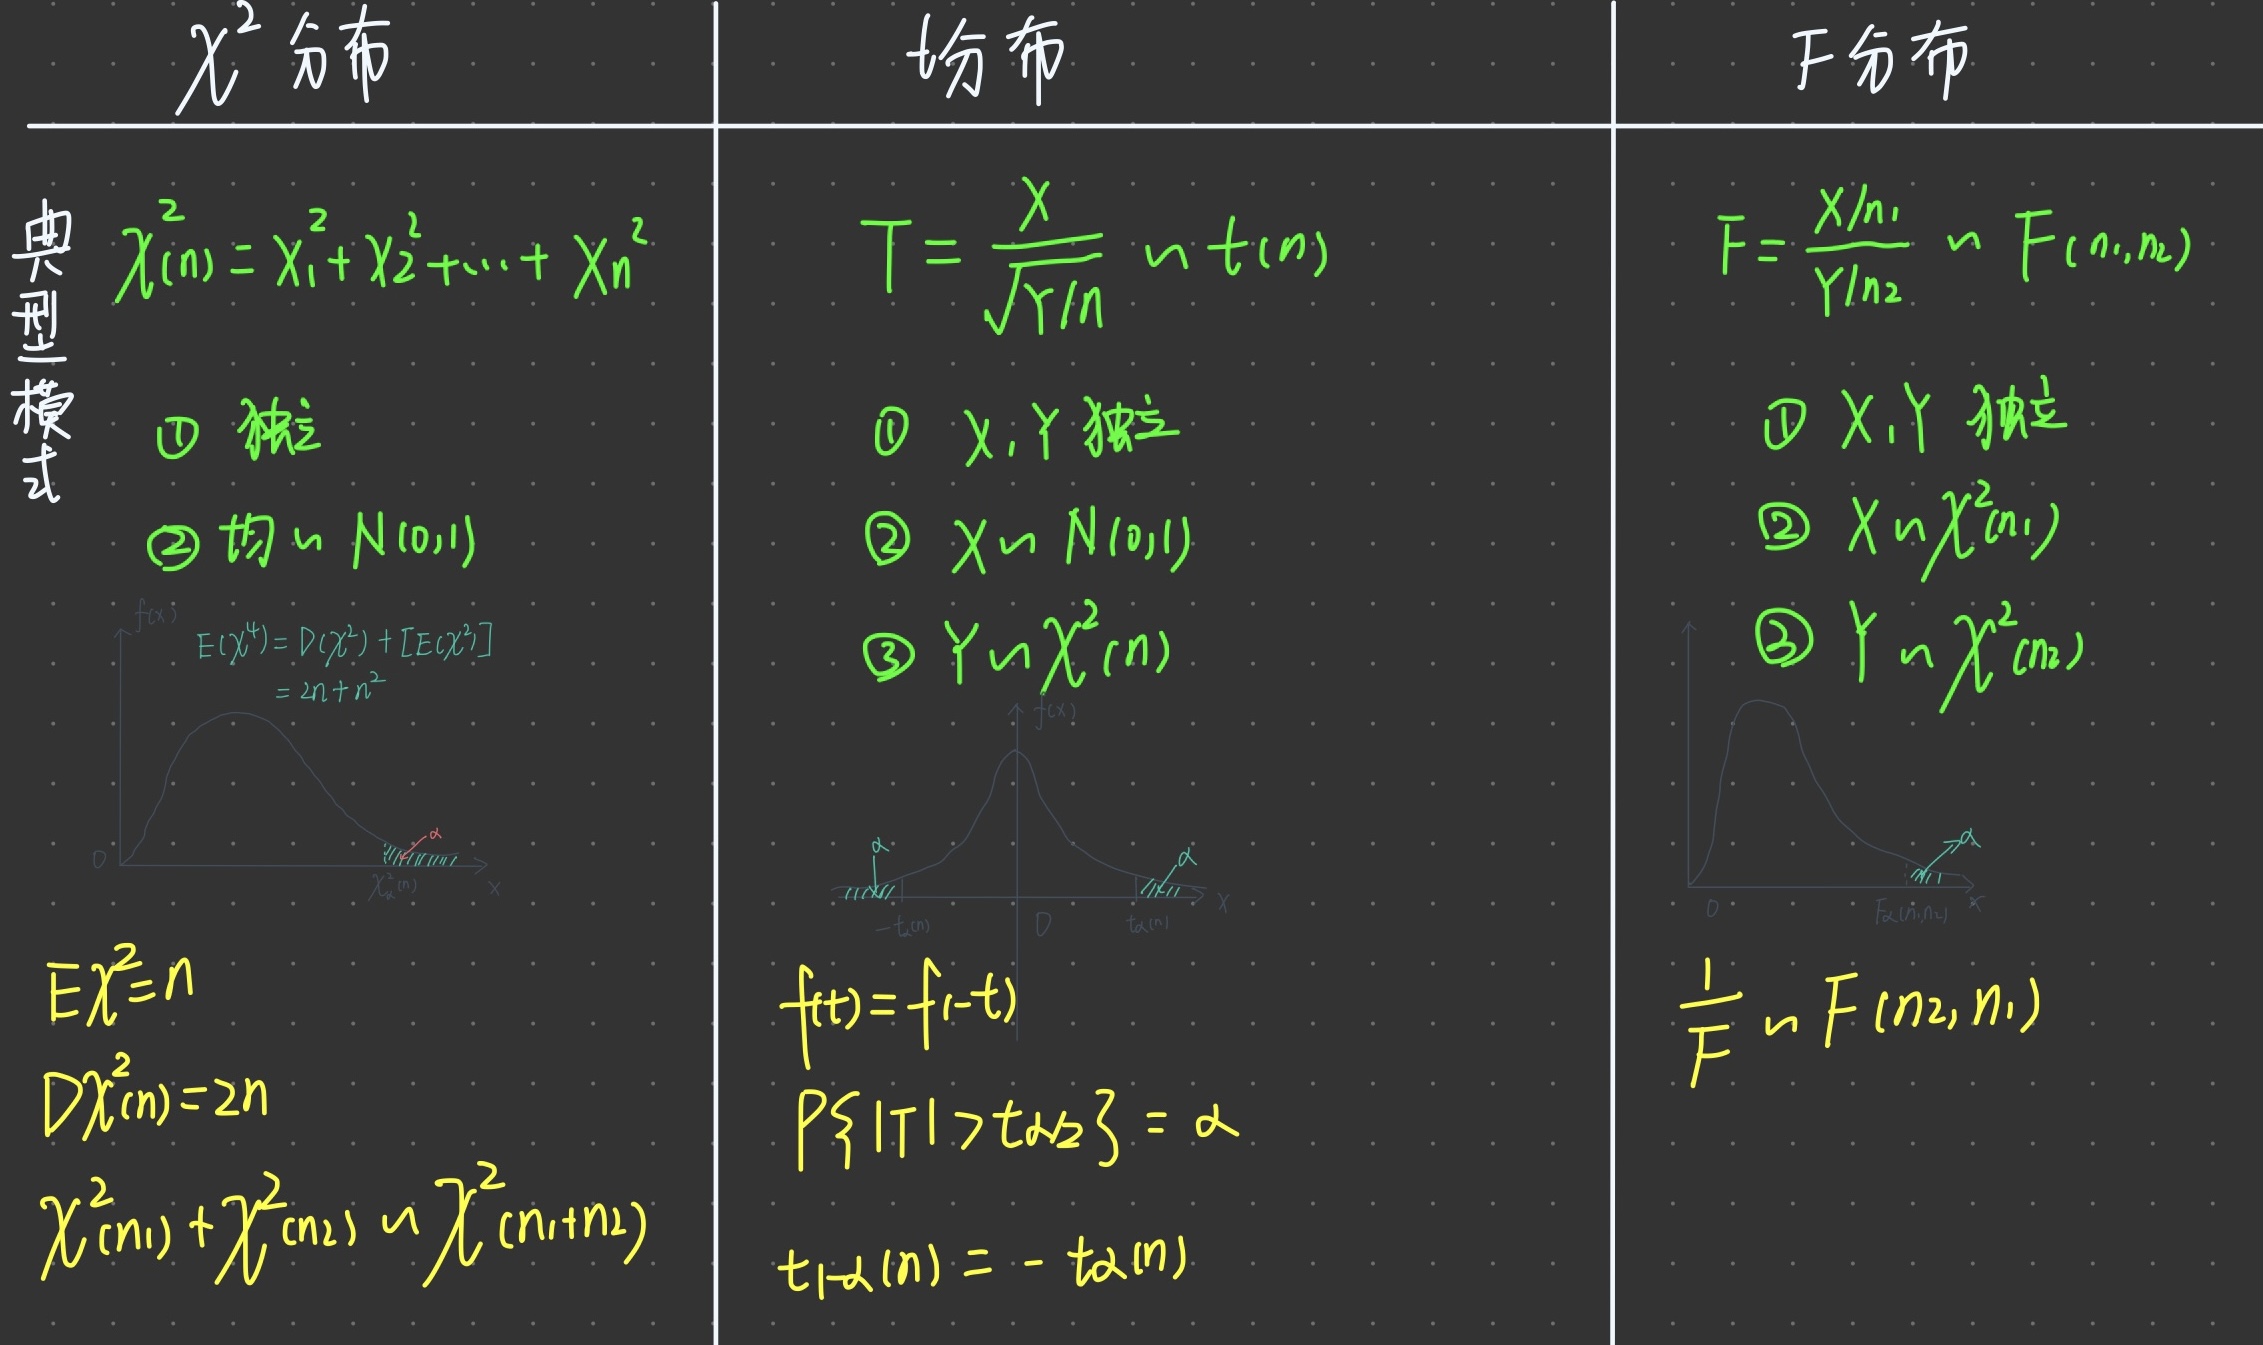 χ² 分布
t分布
F分布
典型模式
χ²(n) = X₁² + X₂² + ... + Xn²
① 独立
② 均 ~ N(0,1)
f(x)
E(χ⁴) = D(χ²) + [E(χ²)]
= 2n + n²
α
0
χ²α(n)
x
Eχ² = n
Dχ²(n) = 2n
χ²(n₁) + χ²(n₂) ~ χ²(n₁+n₂)
T = X / √(Y/n) ~ t(n)
① X, Y 独立
② X ~ N(0,1)
③ Y ~ χ²(n)
f(x)
α
α
-tα(n)
0
tα(n)
x
f(t) = f(-t)
P{|T| > tα/2} = α
t1-α(n) = - tα(n)
F = (X/n₁) / (Y/n₂) ~ F(n₁, n₂)
① X, Y 独立
② X ~ χ²(n₁)
③ Y ~ χ²(n₂)
α
0
Fα(n₁,n₂)
x
1/F ~ F(n₂, n₁)